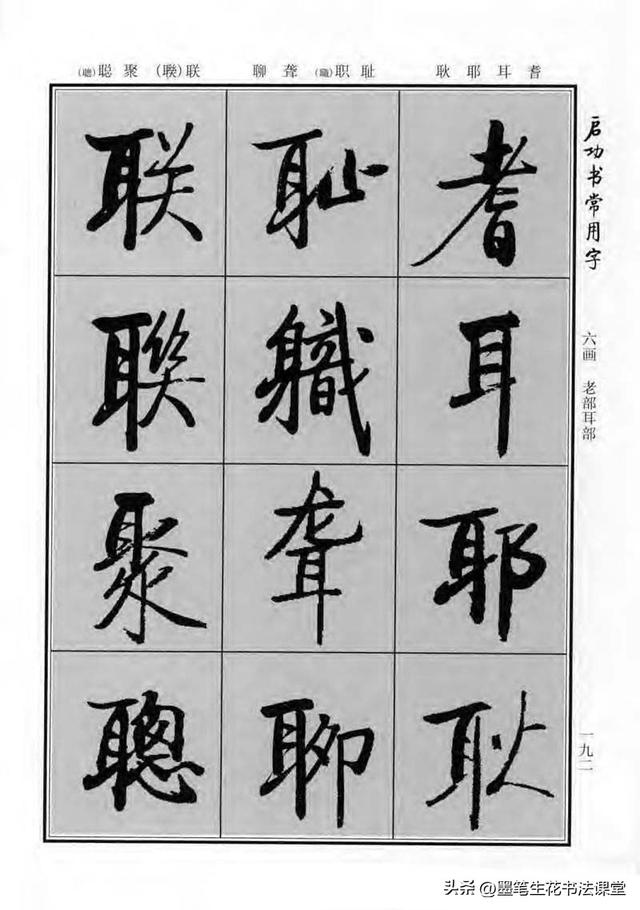 启功书常用字
六画 老部耳部
一九二
耆耳耶耿
耻职(職)聋聊
联(聯)聚聪(聰)
耆
耳
耶
耿
耻
軄
聋
聊
联
聯
聚
聰
头条 @墨笔生花书法课堂